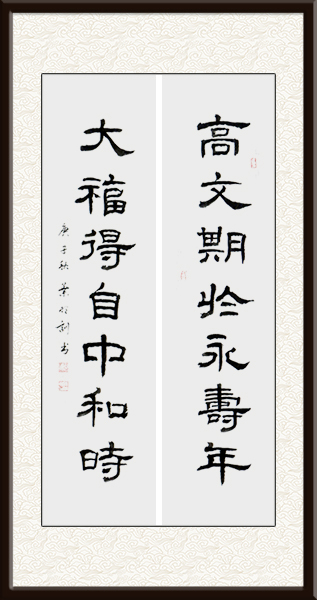 高文期於永壽年
大福得自中和時
庚子秋葉
書